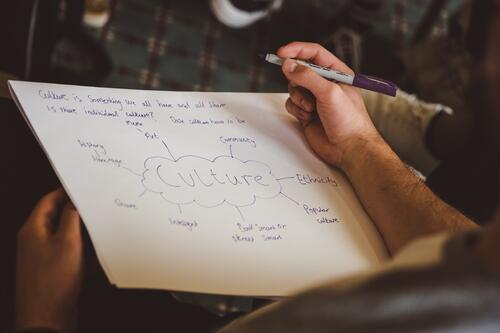 Culture is something we all have and all share
Is there individual culture? Does culture have to be
Art
Community
History
Language
Culture
Ethnicity
Share
Popular
culture
Intelligent
Book smart or
street smart